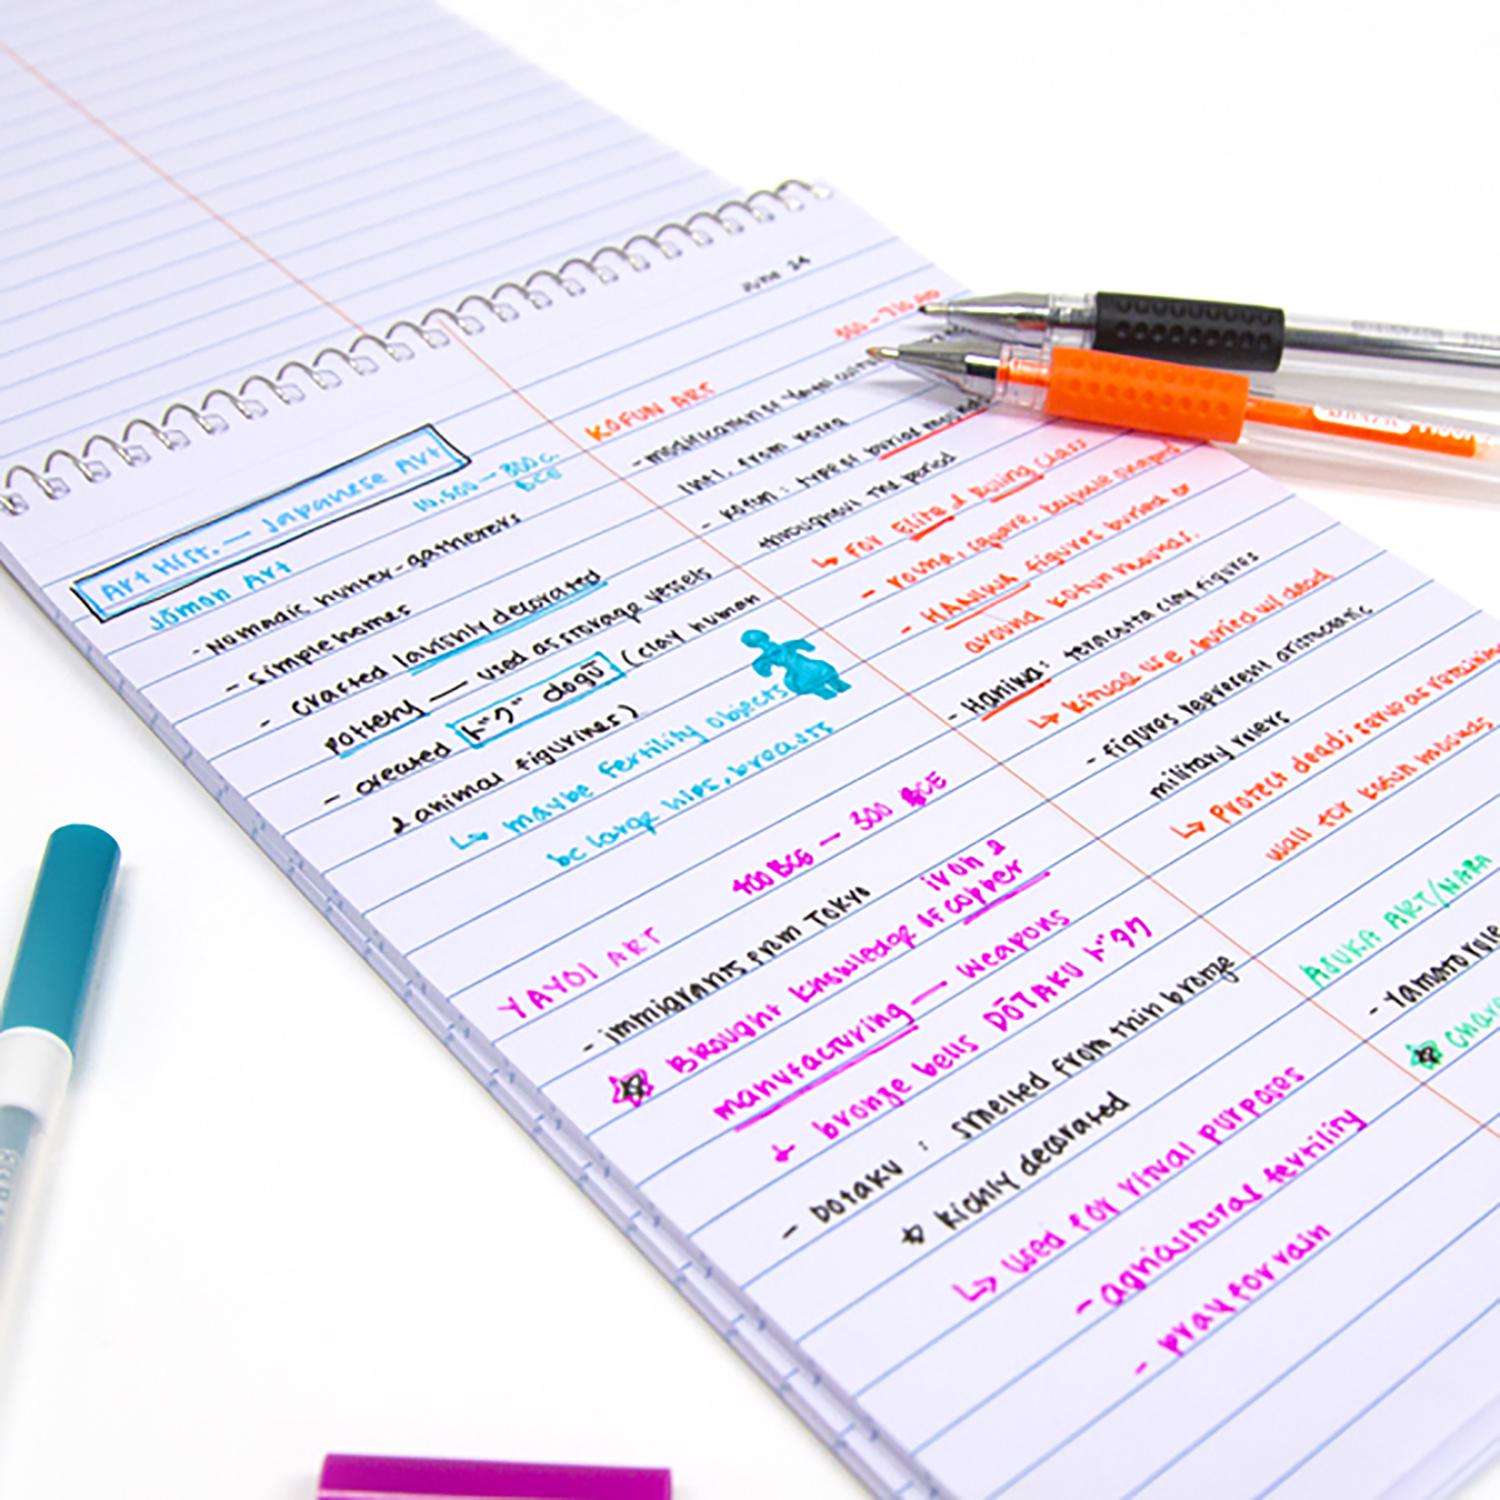 June 24
Art Hist. — Japanese Art
Jōman Art
10,500 — 300 c.
BCE
- Nomadic hunter-gatherers
- simple homes
- crafted lavishly decorated
pottery — used as storage vessels
- created ド"グ" dogū (clay human
& animal figurines)
↳ maybe fertility objects
bc large hips, breasts
YAYOI ART
400 BCE — 300 BCE
- immigrants from Tokyo
iron &
☆ Brought knowledge of copper
manufacturing — weapons
& bronze bells DŌTAKU
- Dotaku : smelted from thin bronze
☆ Richly decorated
↳ used for ritual purposes
- agricultural fertility
- pray for rain
KOFUN ART
300 - 710 AD
- modification of Yayoi
infl. from Korea
- Kofun : type of burial
throughout the period
↳ For Elite & Ruling class
- round, square, keyhole shaped
- HANIWA figures buried or
around kofun mounds.
- Haniwa: terracotta clay figures
↳ Ritual use, buried w/ dead
- figures represent aristocratic
military rulers
↳ Protect dead; serve as retaining
wall for kofun mounds
ASUKA ART/NARA
- Yamato rule
☆